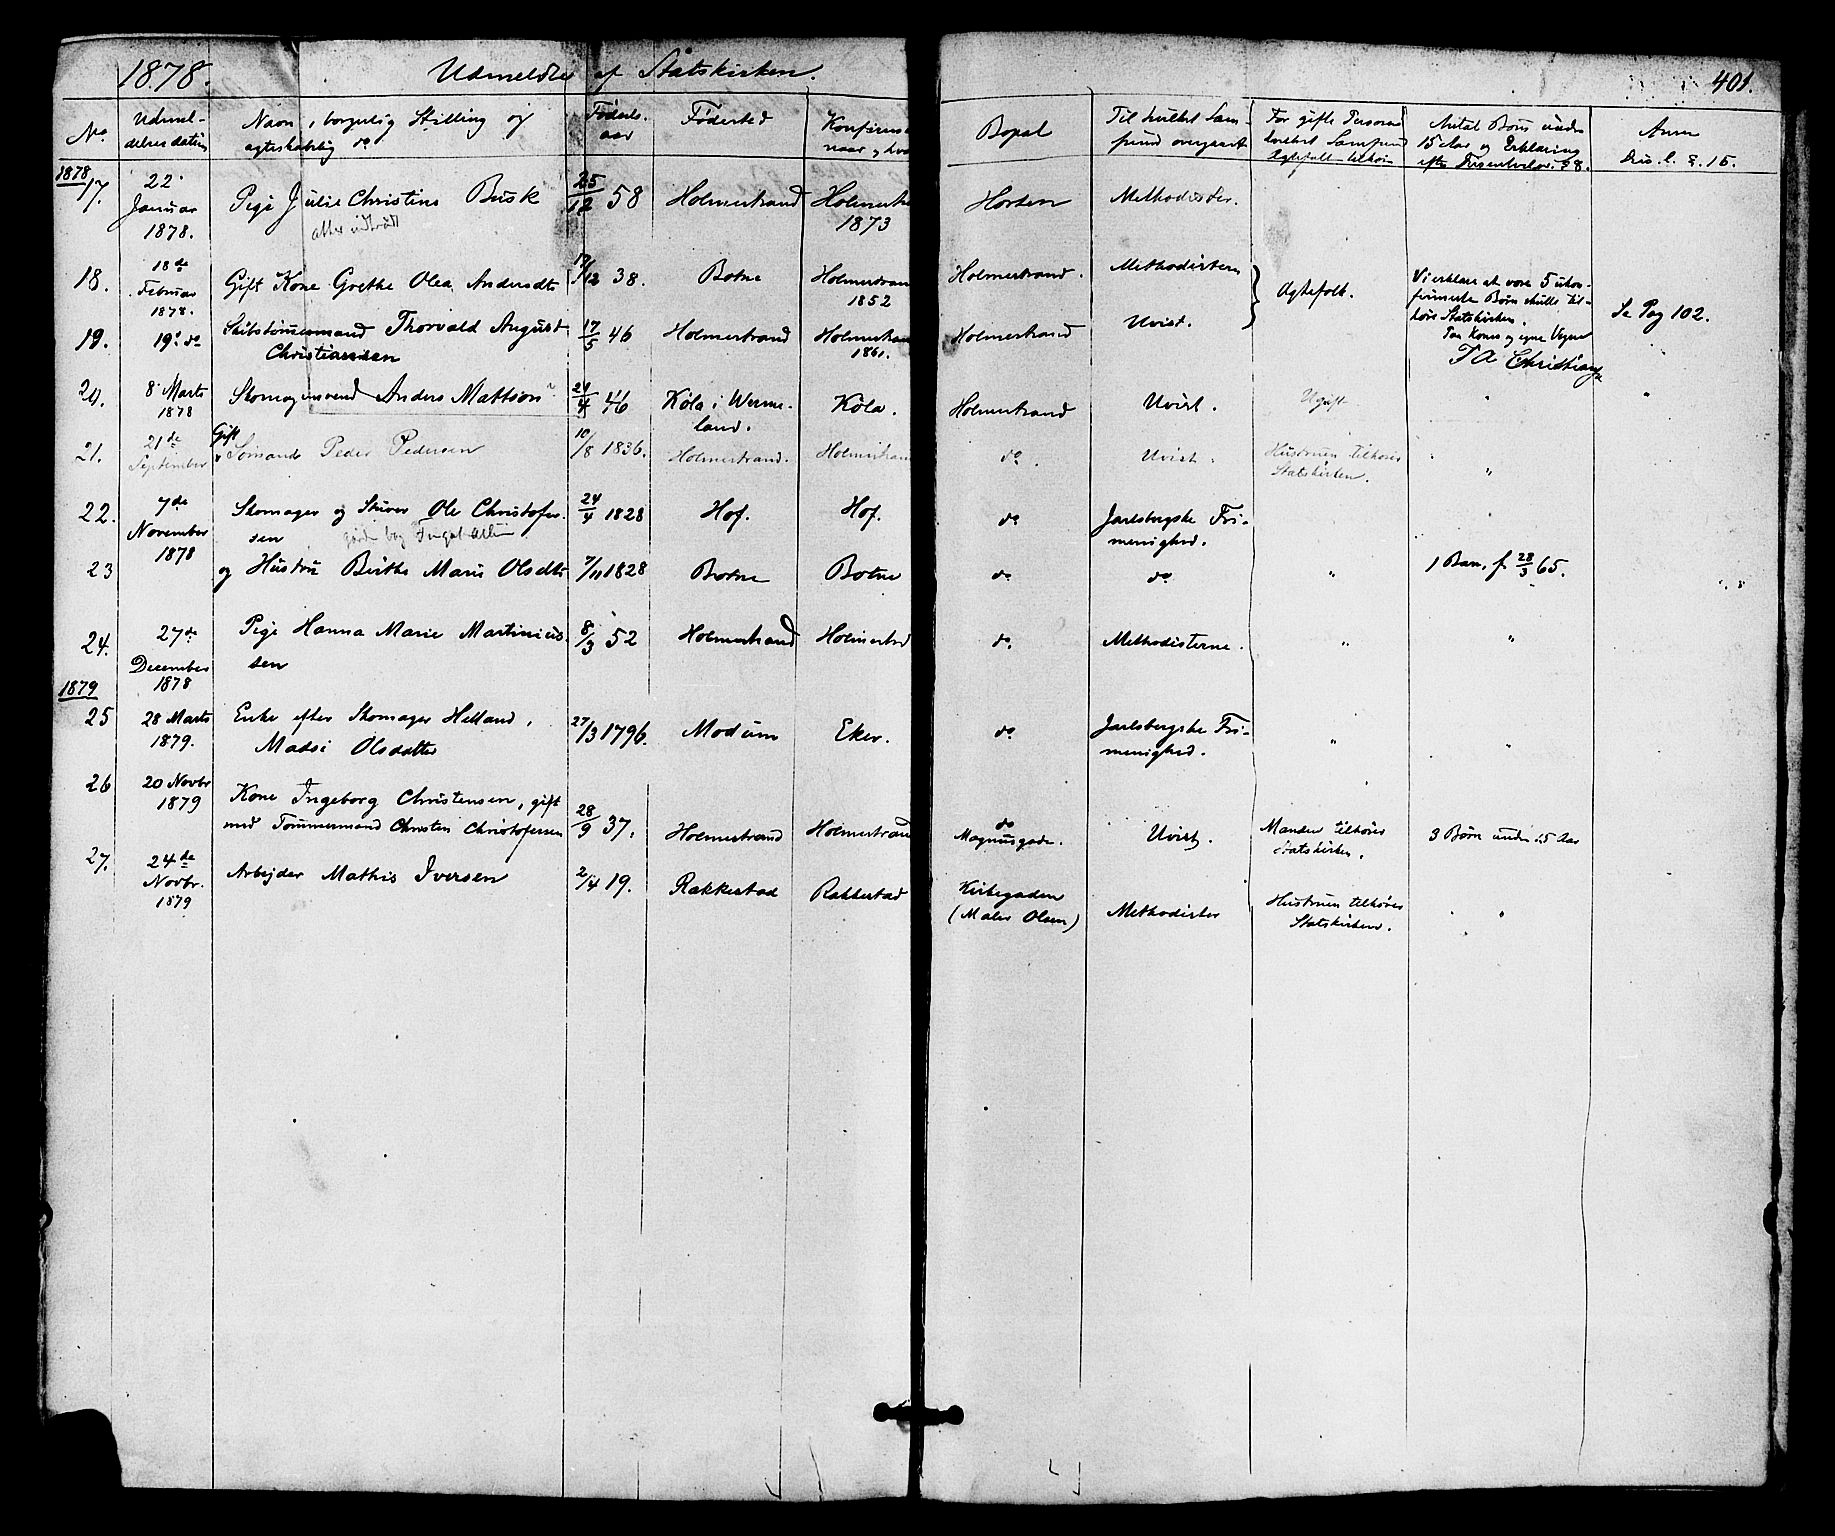 1878. Udmeldte af Statskirken. 401.
No. Udmel-delses datum Navn, borgerlig Stilling og ægteskabelig do Fødsels-aar Fødested Konfirma naar og hvor Bopæl Til hvilket Sam-fund overgaaet For gifte Personer hvilket Samfund Ægtefælle tilhører Antal Børn under 15 Aar og Erklæring efter Dissenterlov. § 8. Anm Diss. l. § 15.
1878
17. 22 Januar 1878. Pige Julie Christine Busk 25/12 58 Holmestrand Holmestr 1873 Horten Methodister.
atter indtraadt
18. 18de Februar 1878. Gift Kone Grethe Olea Andersdtr 17/12 38. Botne Holmestran 1852 Holmestrand. Methodisterne Ægtefolk. Vi erklære at vore 5 ukon-firmerte Børn skulle til-høre Statskirken.
19. 19. do Skibstømmermand Thorvald August Christiansen 17/5 46 Holmestrand Holmestran 1861. Holmestrand Uvist. Paa Kones og egne Vegne T A Christians Se Pag 102.
20. 8 Marts 1878 Skomagersvend Anders Mattson 24/4 46 Köla i Werme-land. Köla. Holmestrand Uvist. Ugift " "
21. 21de September Gift Sømand Peder Pedersen 10/8 1836. Holmestrand. Holmestran do. Uvist. Hustruen tilhører Statskirken. "
22. 7de November 1878 Skomager og Skriver Ole Christofer-sen 24/4 1828 Hof. Hof. do Jarlsbergske Fri-menighed. " "
23 og Hustru Birthe Marie Olsdtr 7/11 1828 Botne Botne do do " 1 Barn, f. 28/3 65.
24. 27de December 1878 Pige Hanna Marie Martinius-sen 8/3 52 Holmestrand Holmestrd do. Methodisterne. " "
1879
25 28 Marts 1879. Enke efter Skomager Helland, Madsi Olsdatter 27/3 1796. Modum Eker. do Jarlsbergske Fri-menighed. " "
26 20 Novbr 1879 Kone Ingeborg Christensen, gift med Tømmermand Christen Christofersen 28/9 37. Holmestrand Holmestrand do Magnusgade. Uvist. Manden tilhører Statskirken. 3 Børn under 15 Aar
27. 24de Novbr. 1879 Arbejder Mathis Iversen 2/4 19. Rakkestad Rakkestad Kirkegaden (Maler Olsen) Methodister Hustruen tilhører Statskirken. "